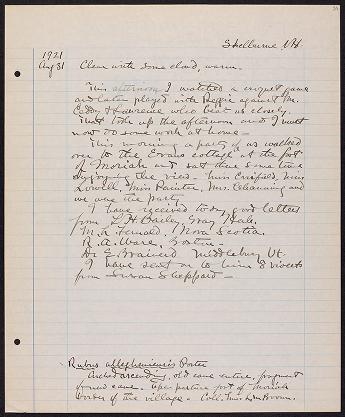 Shelburne, NH
1921
Aug 31
Clear with some cloud, warm.
This afternoon I watched a croquet game
and later played with against Mr.
and Lawrence who beat us closely.
That took up the afternoon and I must
now do some work at home —
This morning a party of us walked
over to the Evans cottage at the foot
of Moriah and sat there some time
enjoying the view. Miss Miss
Lowell, Miss Painter, Mrs. and
we were the party.
I have received today good letters
from L. H. Bailey, Gray Herb.
M. L. Fernald, Nova Scotia.
R. A. Ware, Boston —
Dr E. Brainerd Middlebury Vt.
I have sent on to him 8 violets
from Susan Sheppard —
Rubus allegheniensis Porter
Arched ascending, old cane entire, fragment
of new cane. Open pasture foot of Moriah
border of the village. Coll.